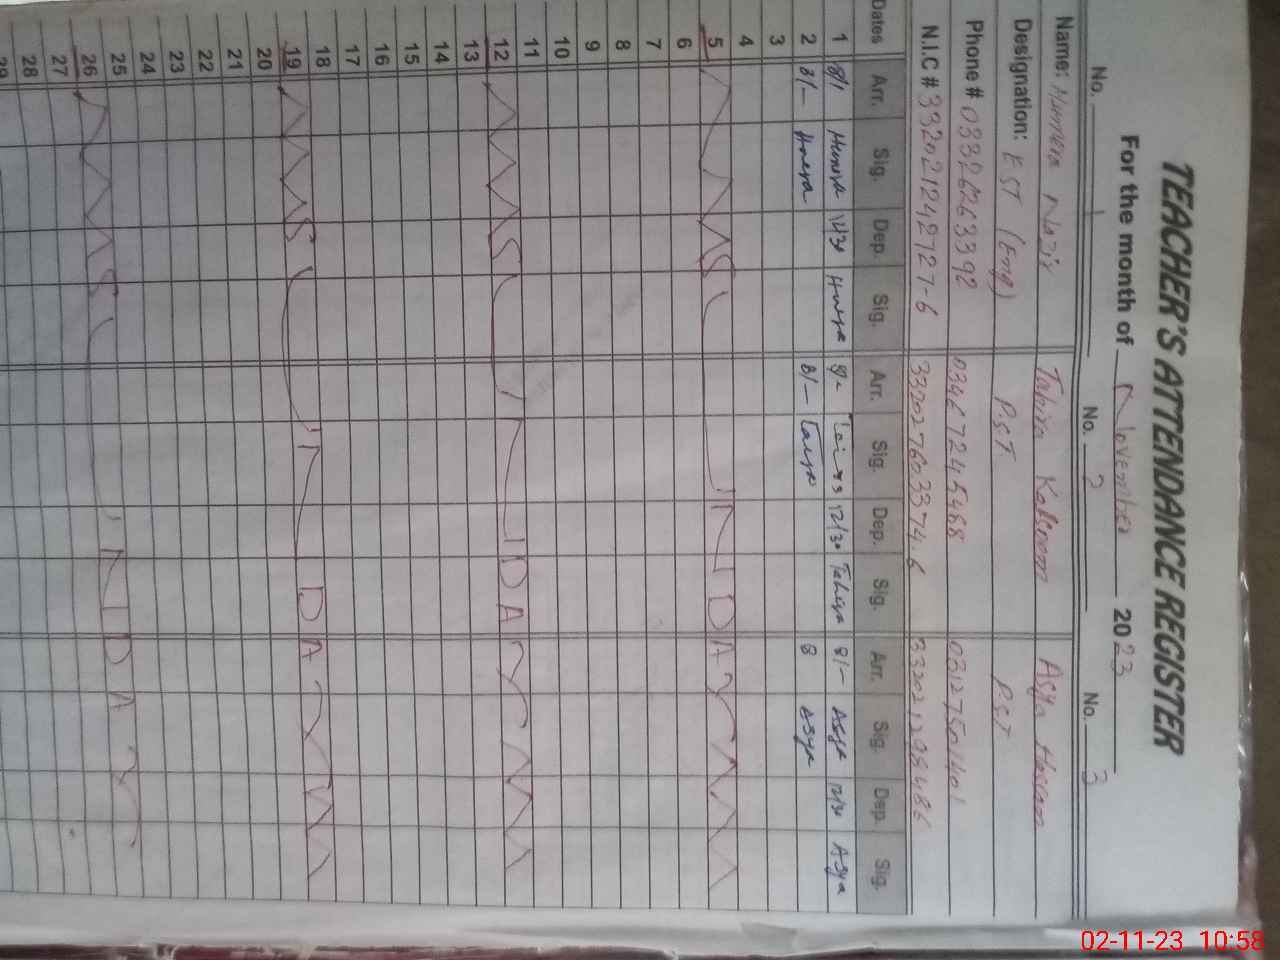 TEACHER'S ATTENDANCE REGISTER
For the month of November 2023
No. 1 No. 2 No. 3
Name: Humera Nazir Tahira Kalsoom Asya Hassan
Designation: EST (Eng) P.S.T P.S.T
Phone # 03326263392 03467245488 03127501401
N.I.C # 3320212427127-6 332027603374.6
Dates Arr. Sig. Dep. Sig. Arr. Sig. Dep. Sig. Arr. Sig. Dep. Sig.
1 8/- Humera 1430 Humera 8/- 12/30 Tahira 8/- Asya 12/30 Asya
2 8/- Humera 8/- 8 Asya
3
4
5 SUNDAY
6
7
8
9
10
11
12 SUNDAY
13
14
15
16
17
18
19 SUNDAY
20
21
22
23
24
25
26 SUNDAY
27
28
29
02-11-23 10:58